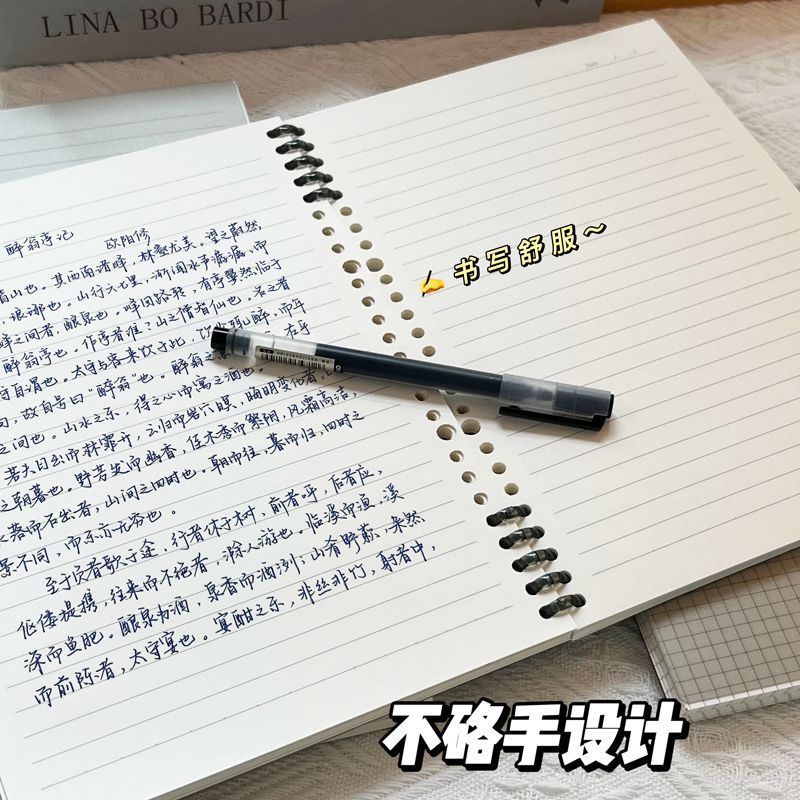 LINA BO BARDI
Date
醉翁亭记 欧阳修
皆山也。其西南诸峰,林壑尤美。望之蔚然
琅琊也。山行六七里,渐闻水声潺潺,而
峰之间者,酿泉也。峰回路转,有亭翼然临于
醉翁亭也。作亭者谁?山之僧智仙也。名之者
守自谓也。太守与客来饮于此,饮 醉,而年
故自号曰"醉翁"也。醉翁之 在乎
之间也。山水之乐,得之心而寓之酒也。
若夫日出而林霏开,云归而岩穴暝,晦明变化者,
之朝暮也。野芳发而幽香,佳木秀而繁阴,风霜高洁,
落而石出者,山间之四时也。朝而往,暮而归,四时之
景不同,而乐亦无穷也。
至于负者歌于途,行者休于树,前者呼,后者应,
伛偻提携,往来而不绝者,滁人游也。临溪而渔,溪
深而鱼肥。酿泉为酒,泉香而酒洌;山肴野蔌,杂然
而前陈者,太守宴也。宴酣之乐,非丝非竹,射者中,
✍书写舒服~
不硌手设计